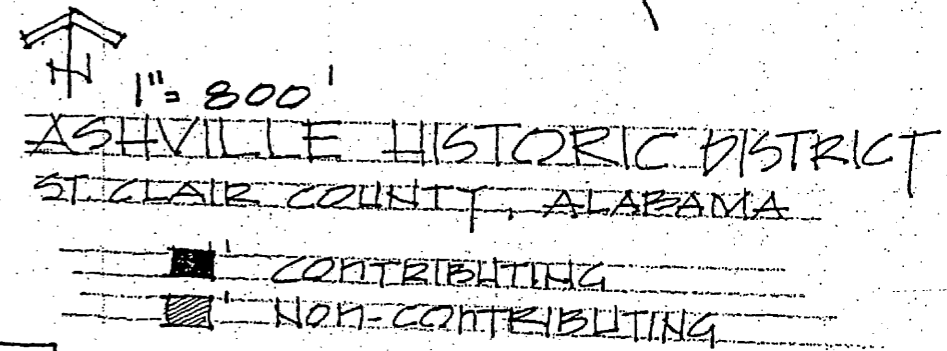 N
1" = 800'
ASHVILLE HISTORIC DISTRICT
ST. CLAIR COUNTY, ALABAMA
CONTRIBUTING
NON-CONTRIBUTING